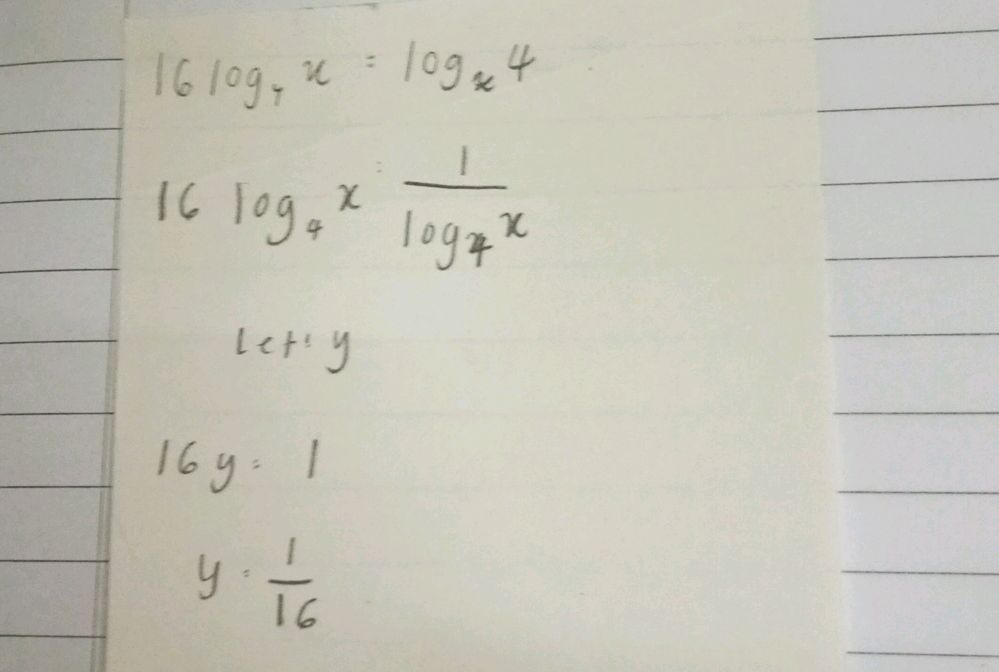 16 log₄ x = log ₓ 4
16 log₄ x = 1/log₄ x
Let: y
16y = 1
y = 1/16